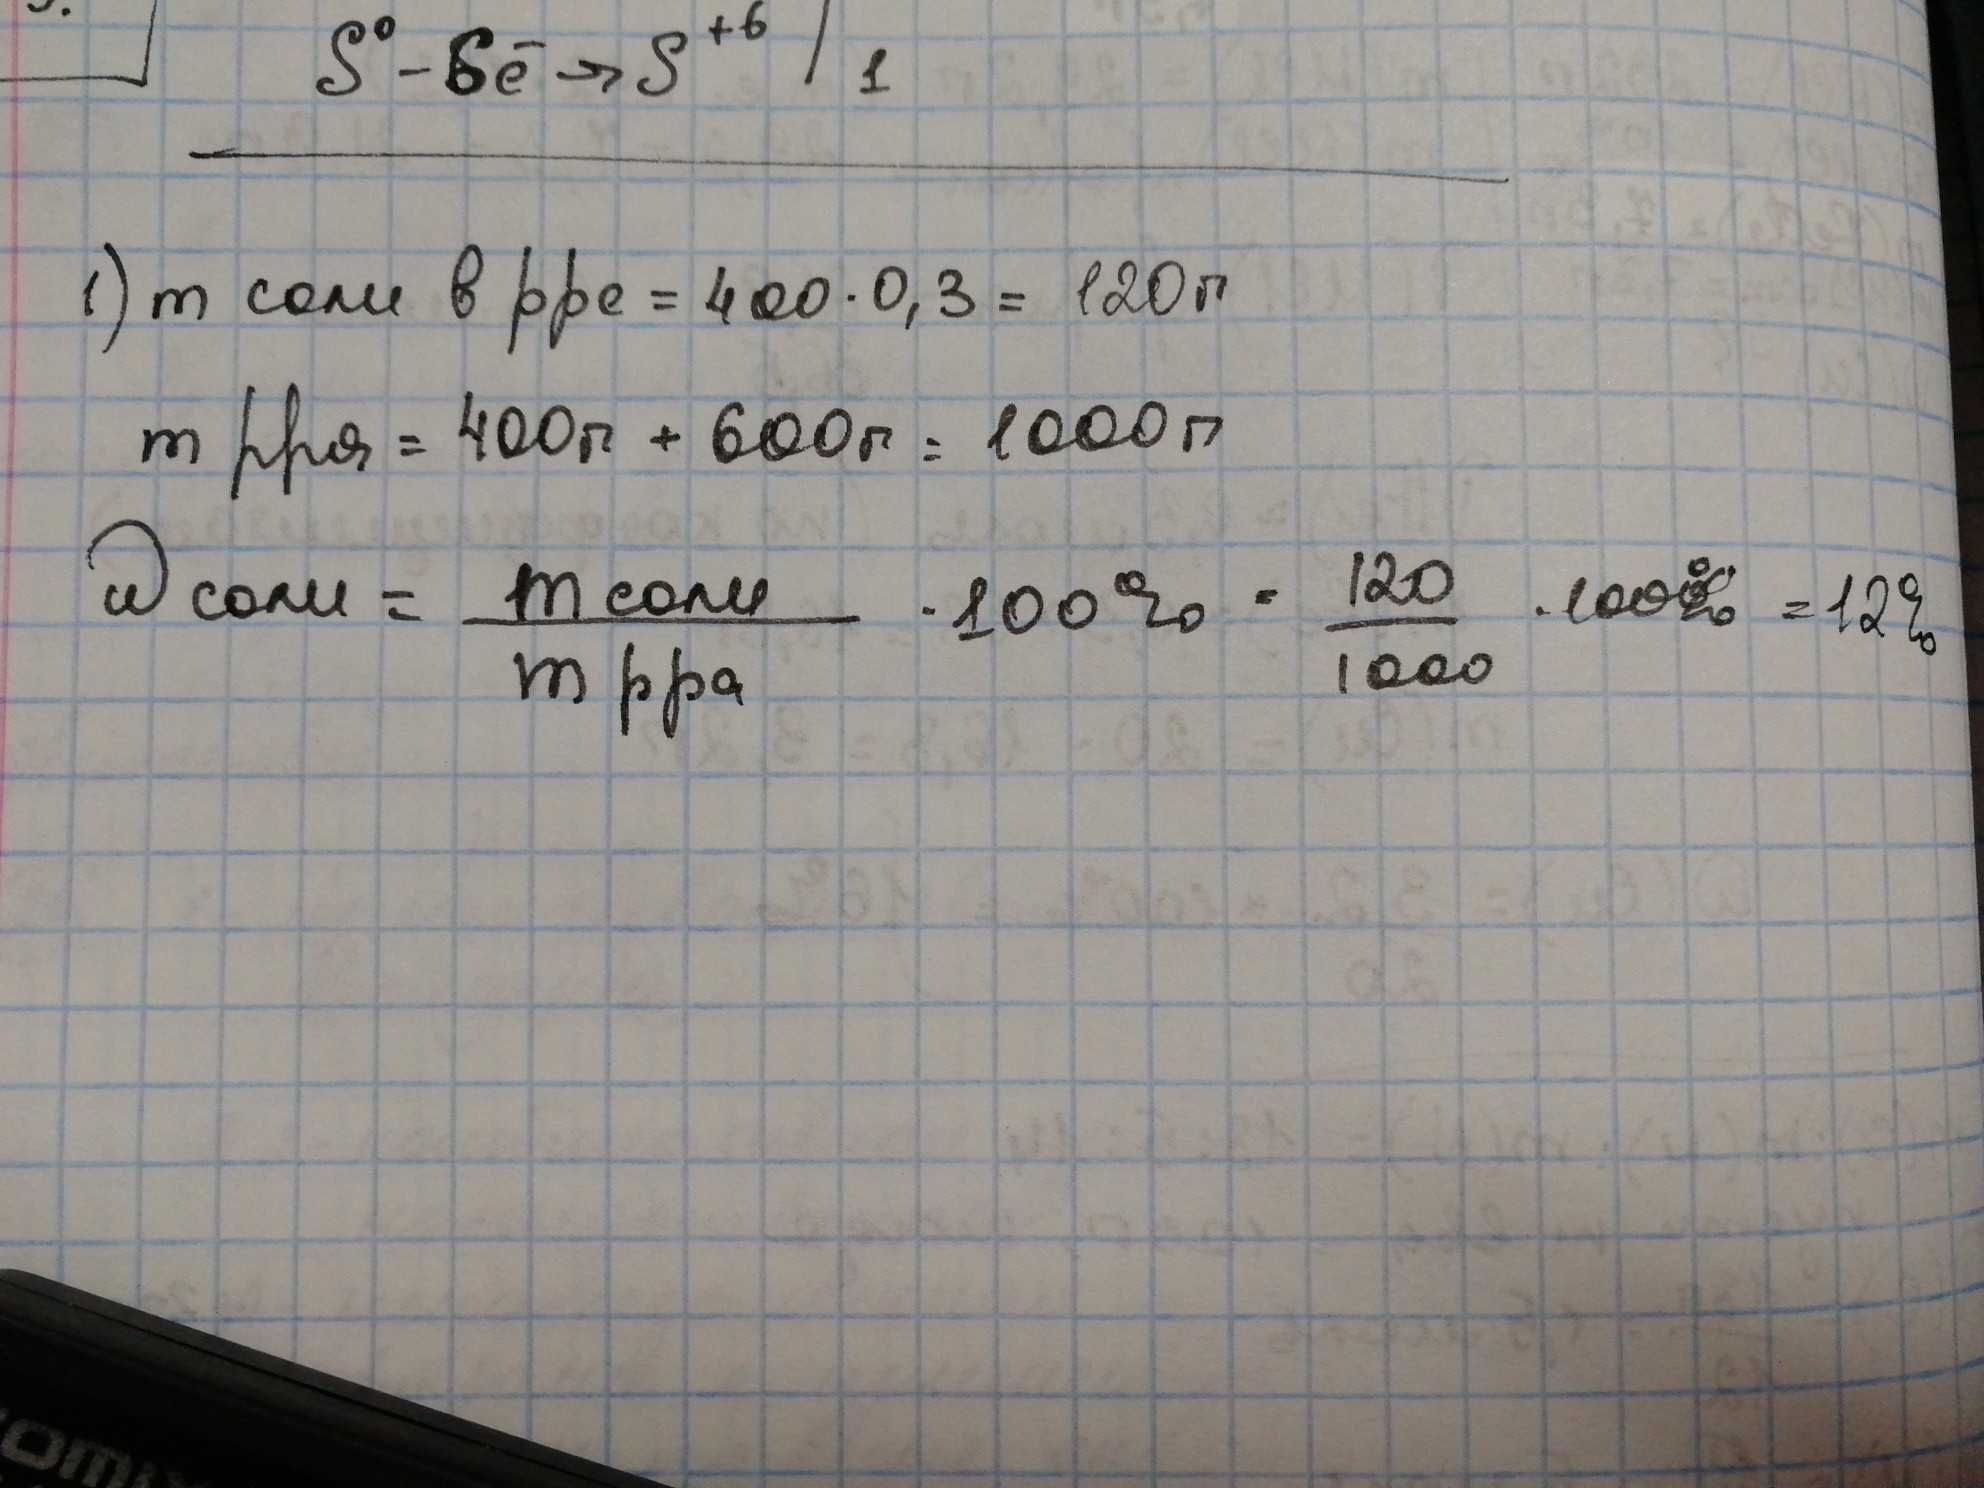 S⁰ - 6ē → S⁺⁶ / 1
1) m соли в рре = 400 · 0,3 = 120г
m рра = 400г + 600г = 1000г
ω соли = m соли / m рра · 100% = 120 / 1000 · 100% = 12%